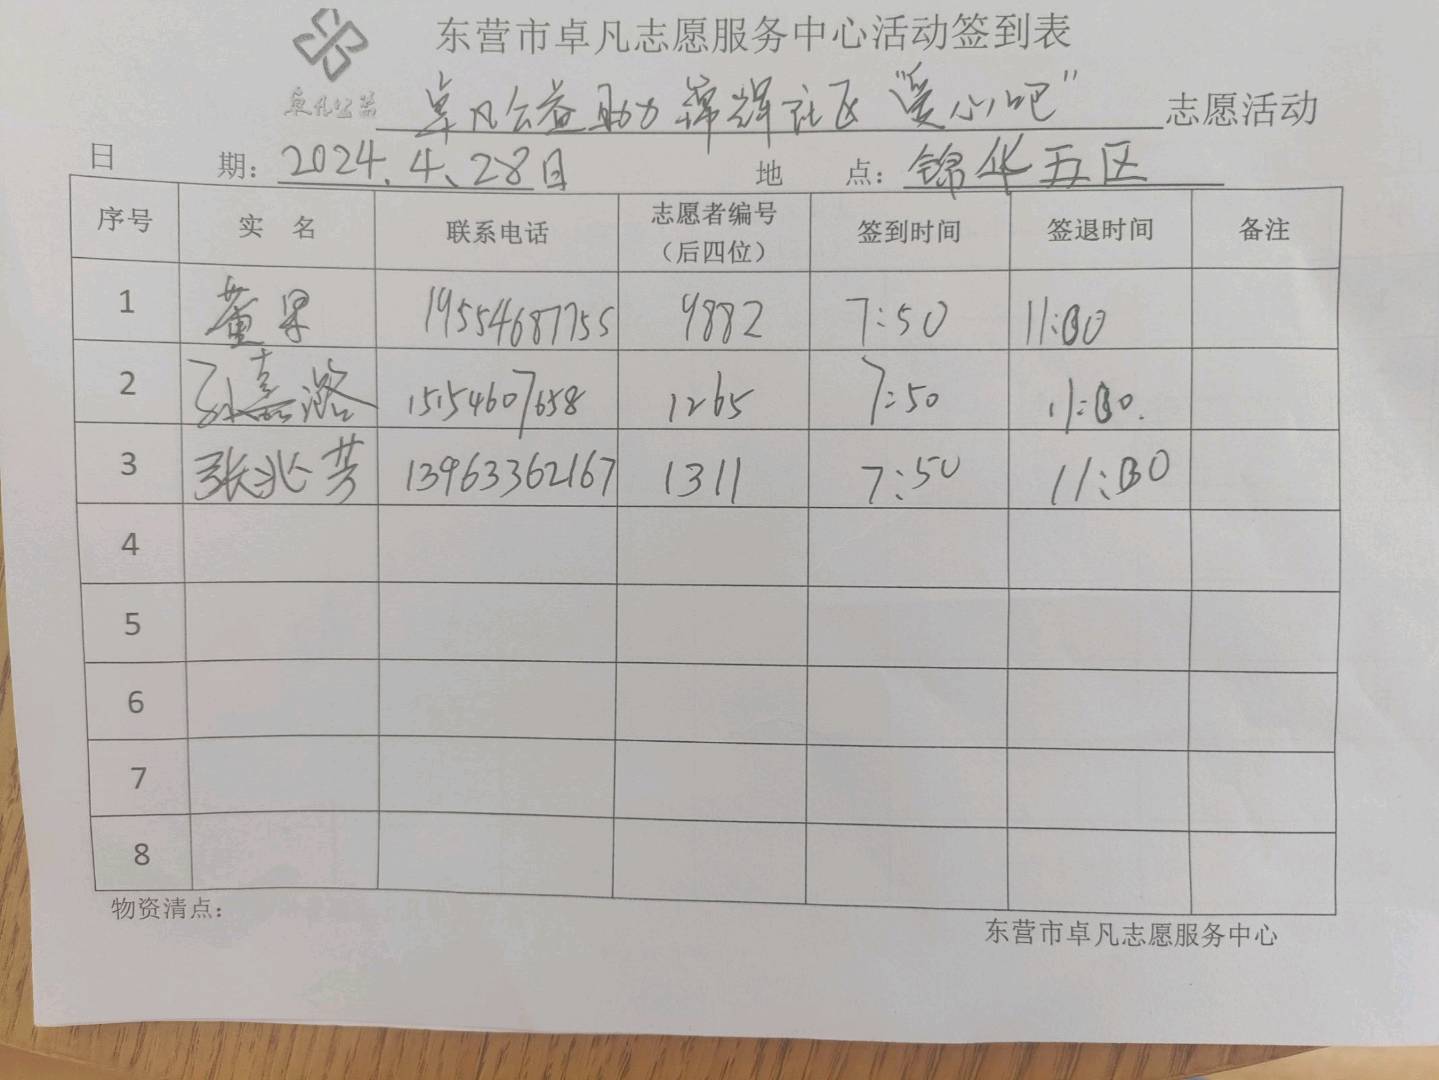 东营市卓凡志愿服务中心活动签到表
卓凡公益
卓凡公益助力锦辉社区“爱心吧”志愿活动
日 期：2024.4.28日 地 点：锦华五区
序号 实 名 联系电话 志愿者编号（后四位） 签到时间 签退时间 备注
1 董果 19554687755 9882 7:50 11:00
2 孙嘉潞 15154607658 1265 7:50 11:00.
3 张兆芳 13963362167 1311 7:50 11:00
4
5
6
7
8
物资清点：
东营市卓凡志愿服务中心